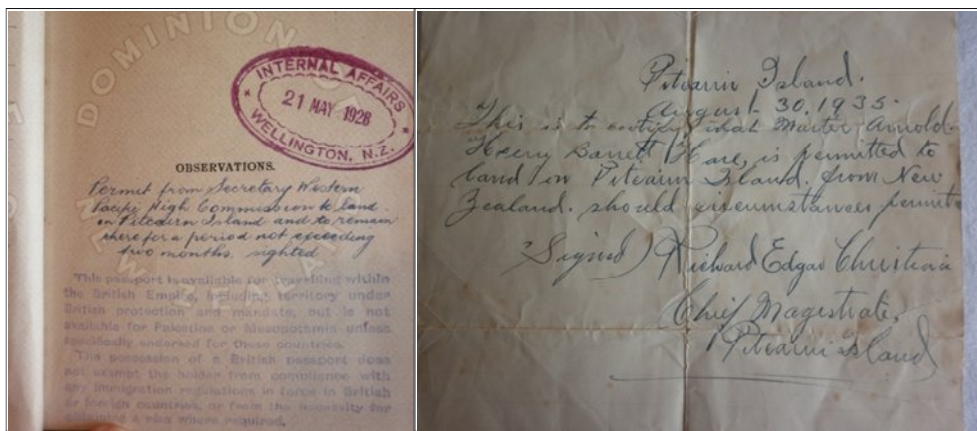 DOMINION
INTERNAL AFFAIRS
21 MAY 1928
WELLINGTON, N.Z.
OBSERVATIONS.
Permit from Secretary Western
Pacific High Commission to land
on Pitcairn Island and to remain
there for a period not exceeding
two months, sighted
This passport is available for travelling within
the British Empire, including territory under
British protection and mandate, but is not
available for Palestine or Mesopotamia unless
specifically endorsed for these countries.
The possession of a British passport does
not exempt the holder from compliance with
any immigration regulations in force in British
or foreign countries, or from the necessity for
obtaining a visa where required.
Pitcairn Island.
August 30. 1935.
This is to certify that Master Arnold
Henry Barrett Hare, is permitted to
land on Pitcairn Island. from New
Zealand. should circumstances permit
Signed) Richard Edgar Christian
Chief Magistrate,
Pitcairn Island